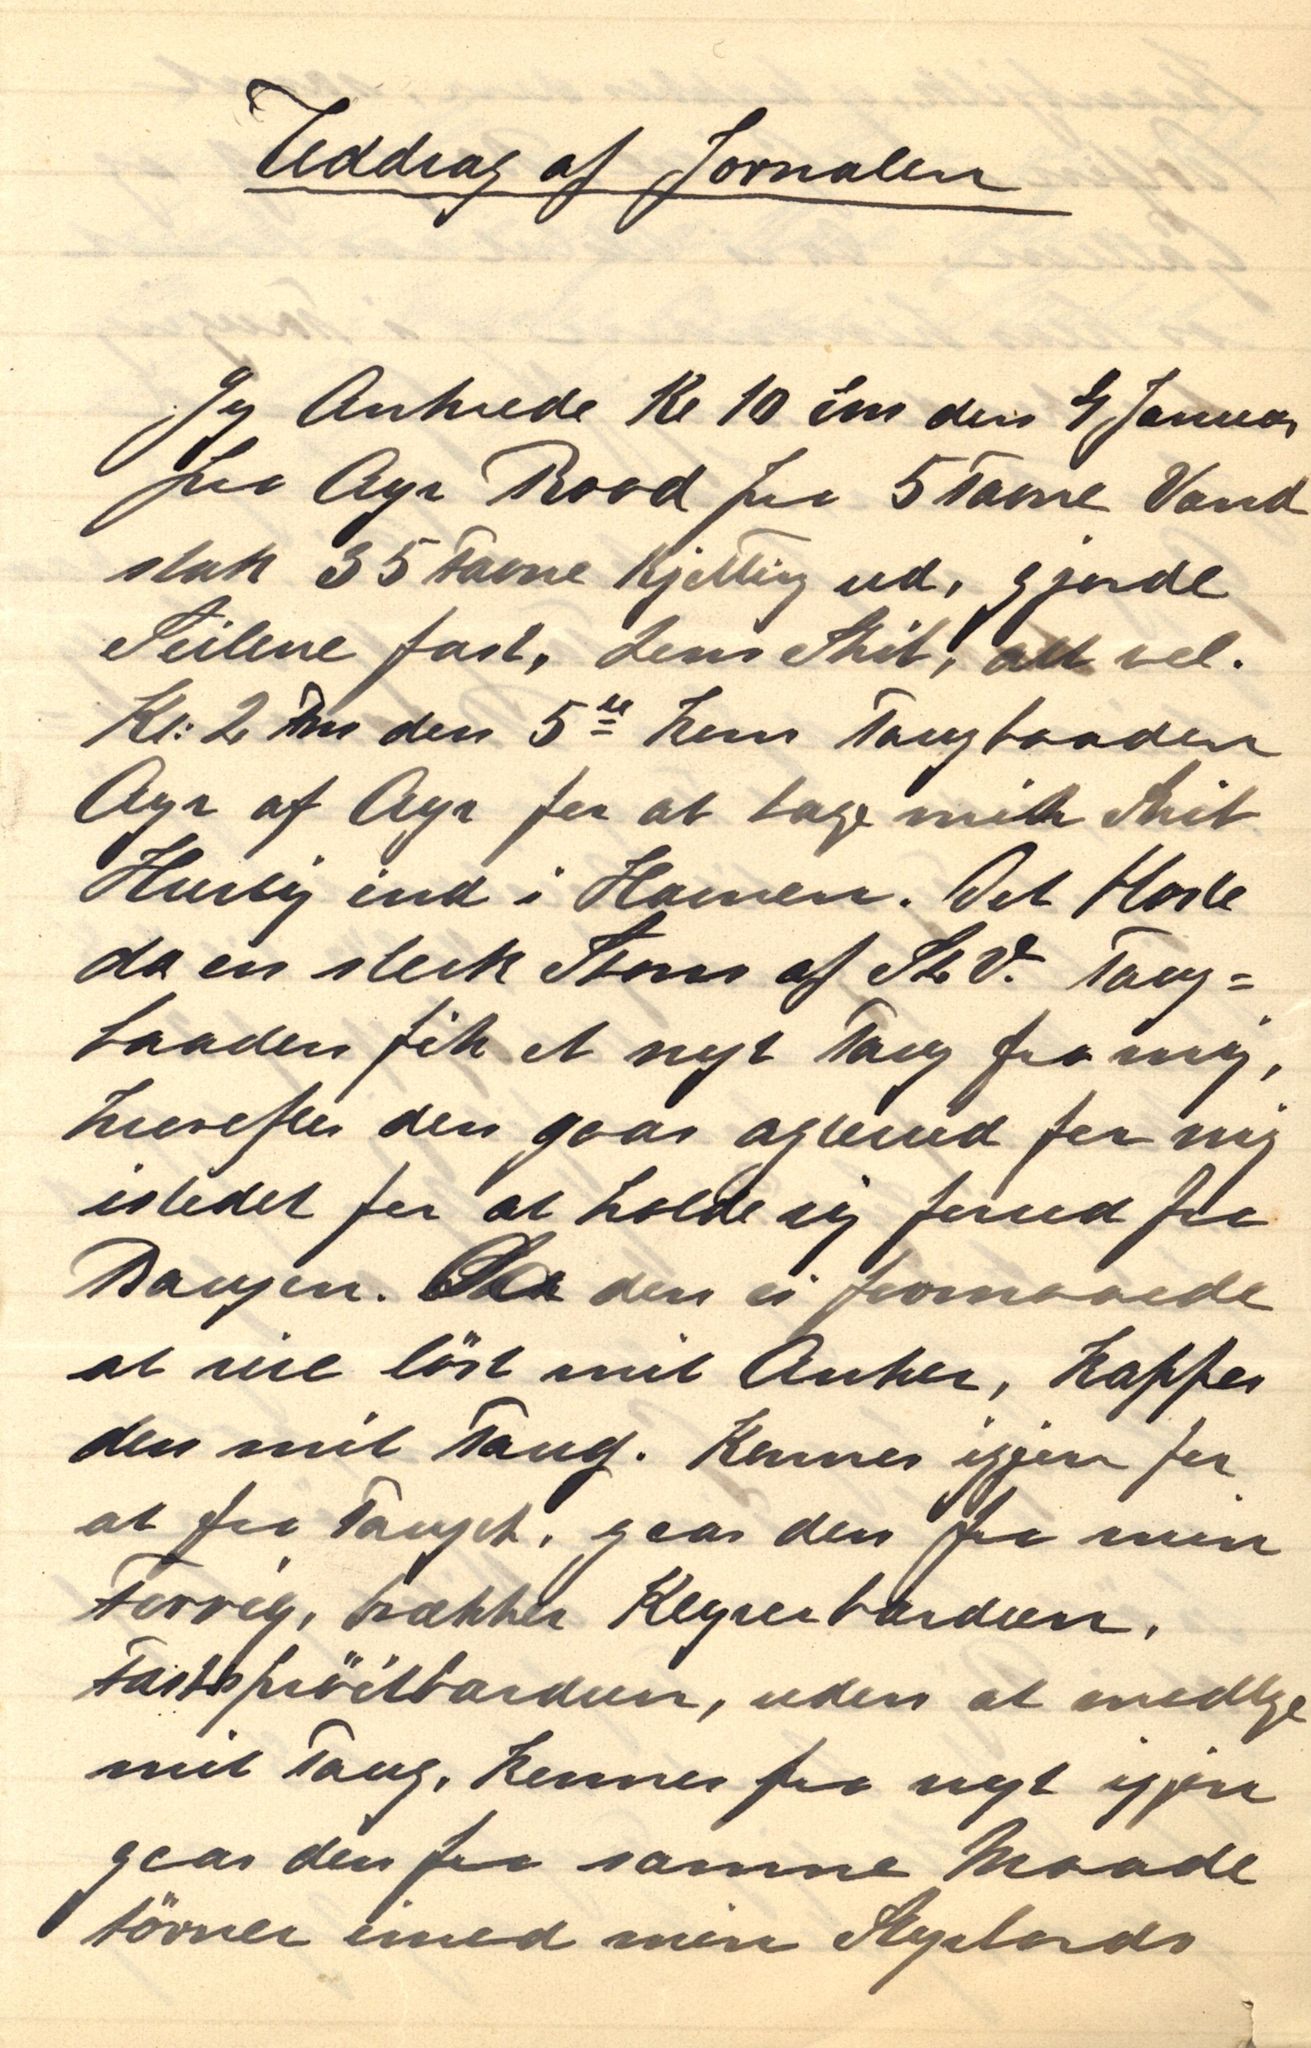 Uddrag af Jornalen
Jeg Ankrede Kl 10 Em den 4 Januar
paa Ayr Road paa 5 Favne Vand
stak 35 Favne Kjetting ud, gjorde
Seilene fast, Lens Skib, alt vel.
Kl: 2 Fm den 5te kom Taugbaaden
Ayr af Ayr for at tage mit Skib
Hurtig ind i Havnen. Det bloste
da en sterk Storm af St. V. Taug=
baaden fik et nyt Taug fra mig,
hvorefter den gaar agterud for mig
istedet for at holde sig forud fra
Baugen. Da den ei formaaede
at rive löst mit Anker, kapper
den mit Taug. Kommer igjen for
at faa Tauget, gaar den paa min
Forrig, brækker Klyverbardun,
Jagerbardun, uden at modtage
mit Taug, kommer paa nyt igjen
gaar den paa samme Maade
törner imod min Styrbords